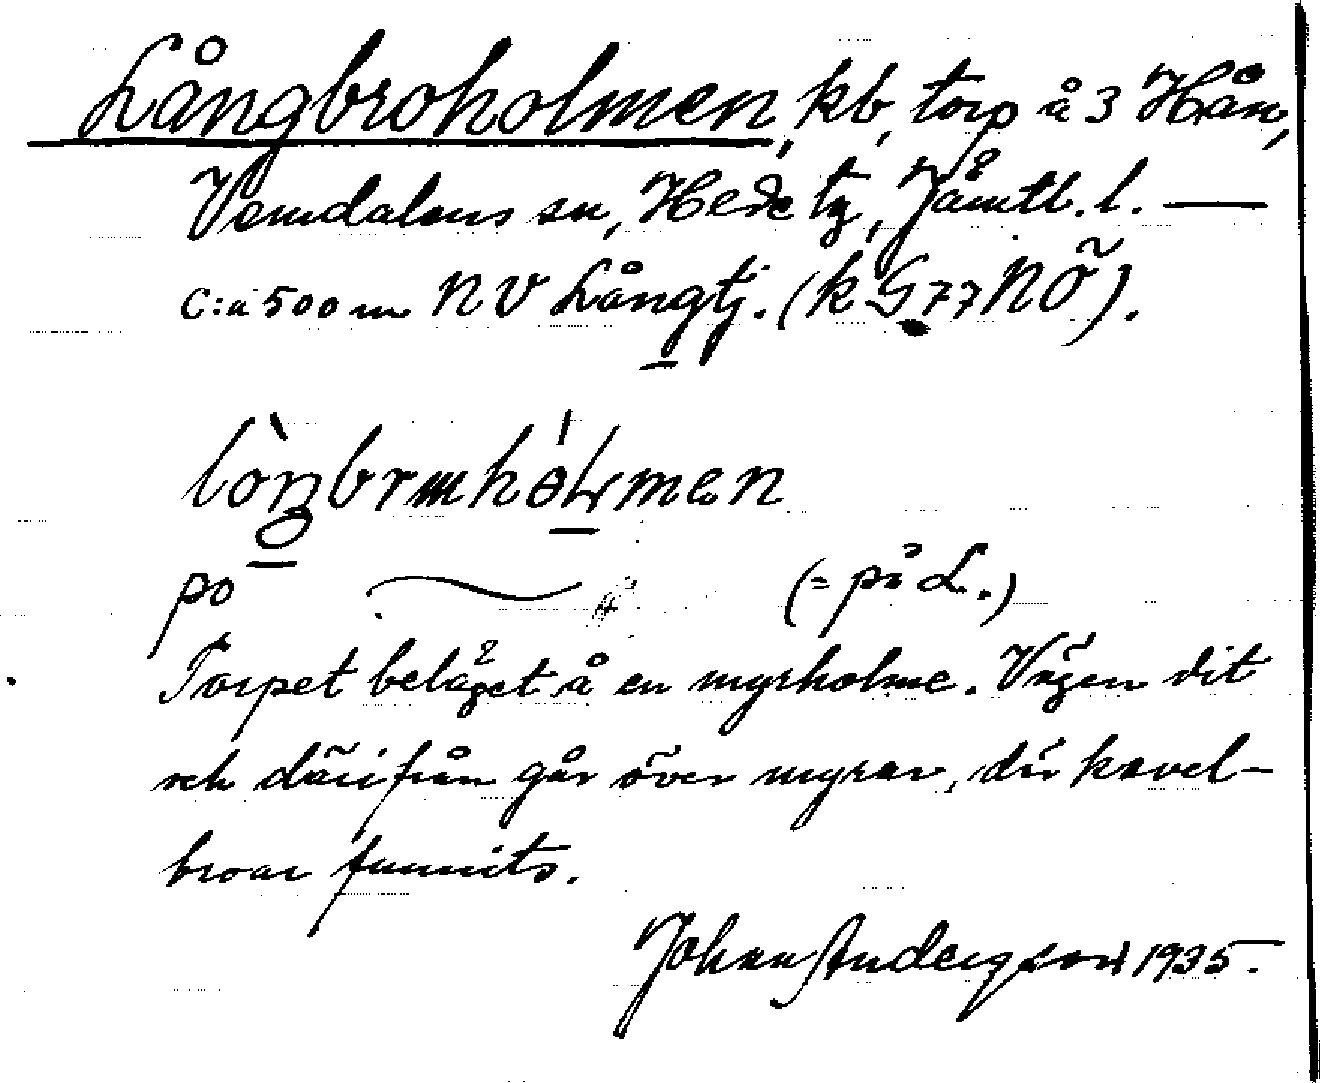 Långbroholmen, kb, torp å 3 Hån,
Vemdalens sn, Hede tg, Jämtl. l. —
C:a 500 m NV Långtj. (k G 77 NÖ).
po ~ (= på L.)
Torpet beläget å en myrholme. Vägen dit
och därifrån går över myrar, där kavel-
broar funnits.
Johan Anderzson 1935.